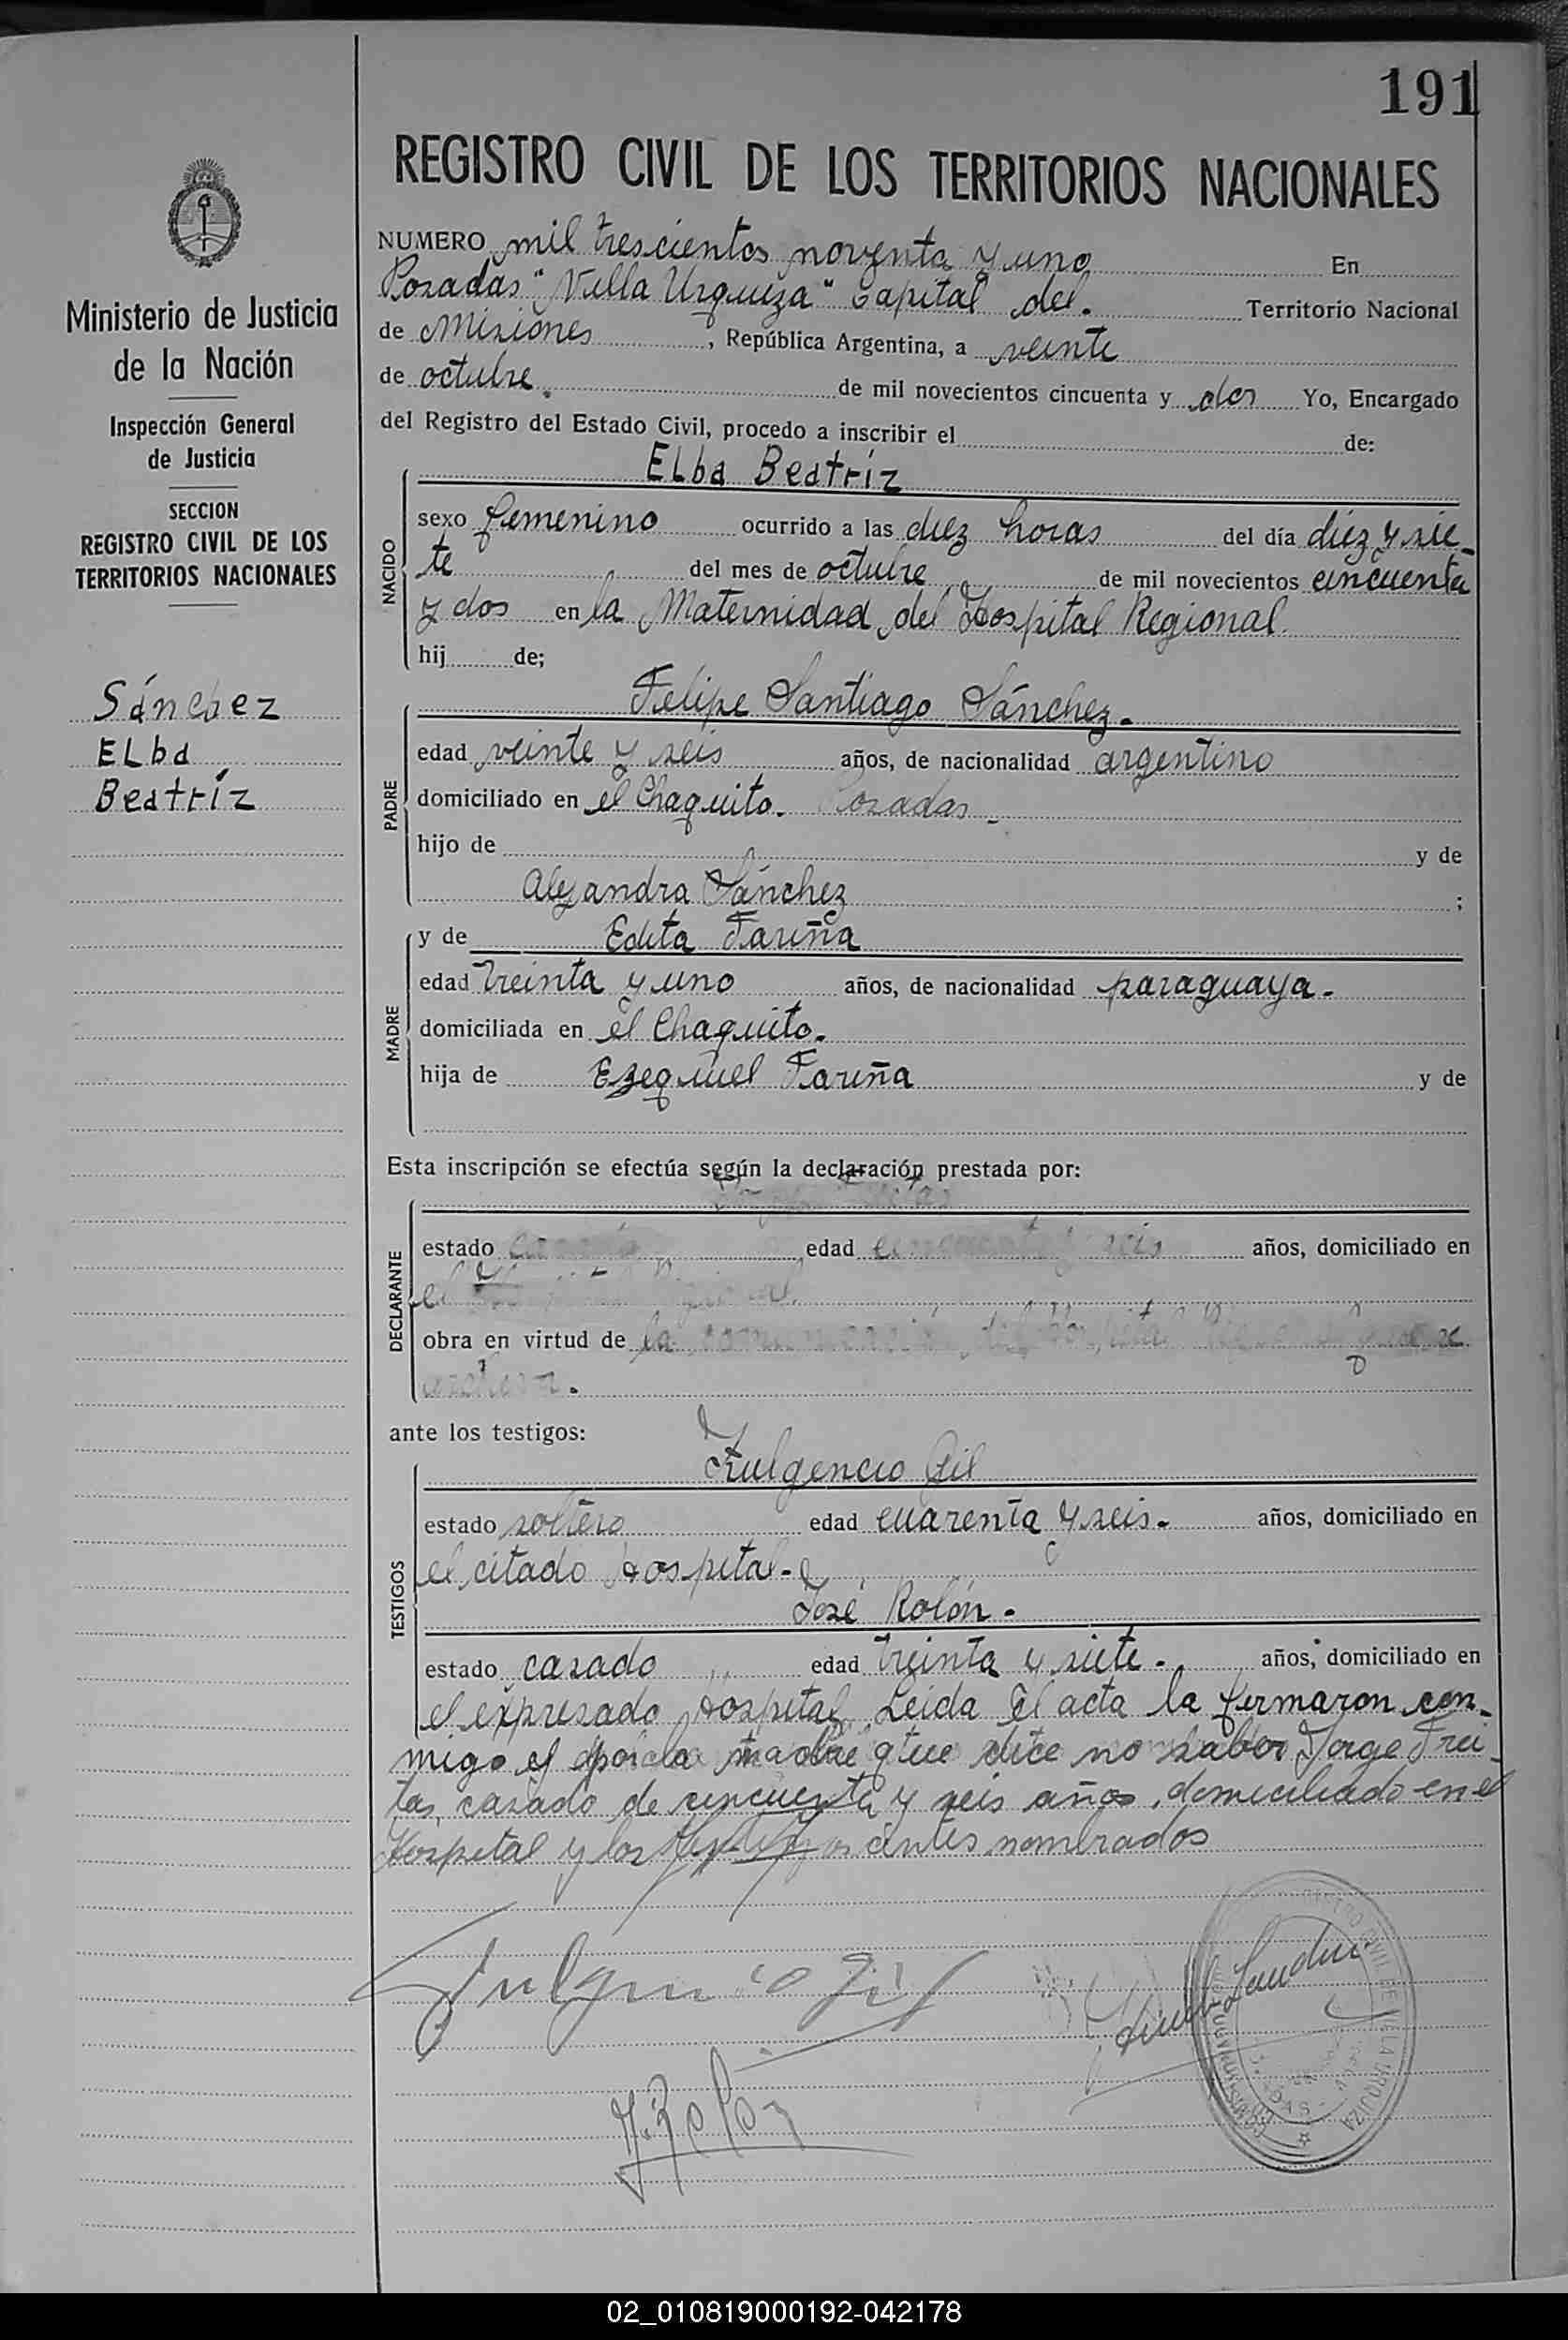 191
REGISTRO CIVIL DE LOS TERRITORIOS NACIONALES
Ministerio de Justicia
de la Nación
Inspección General
de Justicia
SECCION
REGISTRO CIVIL DE LOS
TERRITORIOS NACIONALES
Sánchez
ELba
Beatríz
NUMERO mil trescientos noventa y uno En
Posadas "Villa Urquiza" Capital del. Territorio Nacional
de Misiones, República Argentina, a veinte
de octubre. de mil novecientos cincuenta y dos Yo, Encargado
del Registro del Estado Civil, procedo a inscribir el de:
ELba Beatríz
NACIDO
sexo femenino ocurrido a las diez horas del día diez y sie-
te del mes de octubre de mil novecientos cincuenta
y dos en la Maternidad del Hospital Regional.
hij de;
Felipe Santiago Sánchez.
PADRE
edad veinte y seis años, de nacionalidad argentino
domiciliado en el Chaquito. Posadas -
hijo de y de
Alejandra Sánchez ;
y de Edita Fariña
MADRE
edad treinta y uno años, de nacionalidad paraguaya.
domiciliada en el Chaquito.
hija de Ezequiel Fariña y de
Esta inscripción se efectúa según la declaración prestada por:
DECLARANTE
estado edad años, domiciliado en
el
obra en virtud de la
ante los testigos:
Fulgencio Gil
TESTIGOS
estado soltero edad cuarenta y seis. años, domiciliado en
el citado Hospital-
José Rolón.
estado casado edad treinta y siete. años, domiciliado en
el expresado Hospital. Leida el acta la firmaron con-
migo por la madre que dice no saber Jorge Frei-
tas, casado de cincuenta y seis años, domiciliado en el
Hospital y los testigos antes nombrados
Fulgencio Gil
J. Rolón
REGISTRO CIVIL DE VILLA URQUIZA
02_010819000192-042178